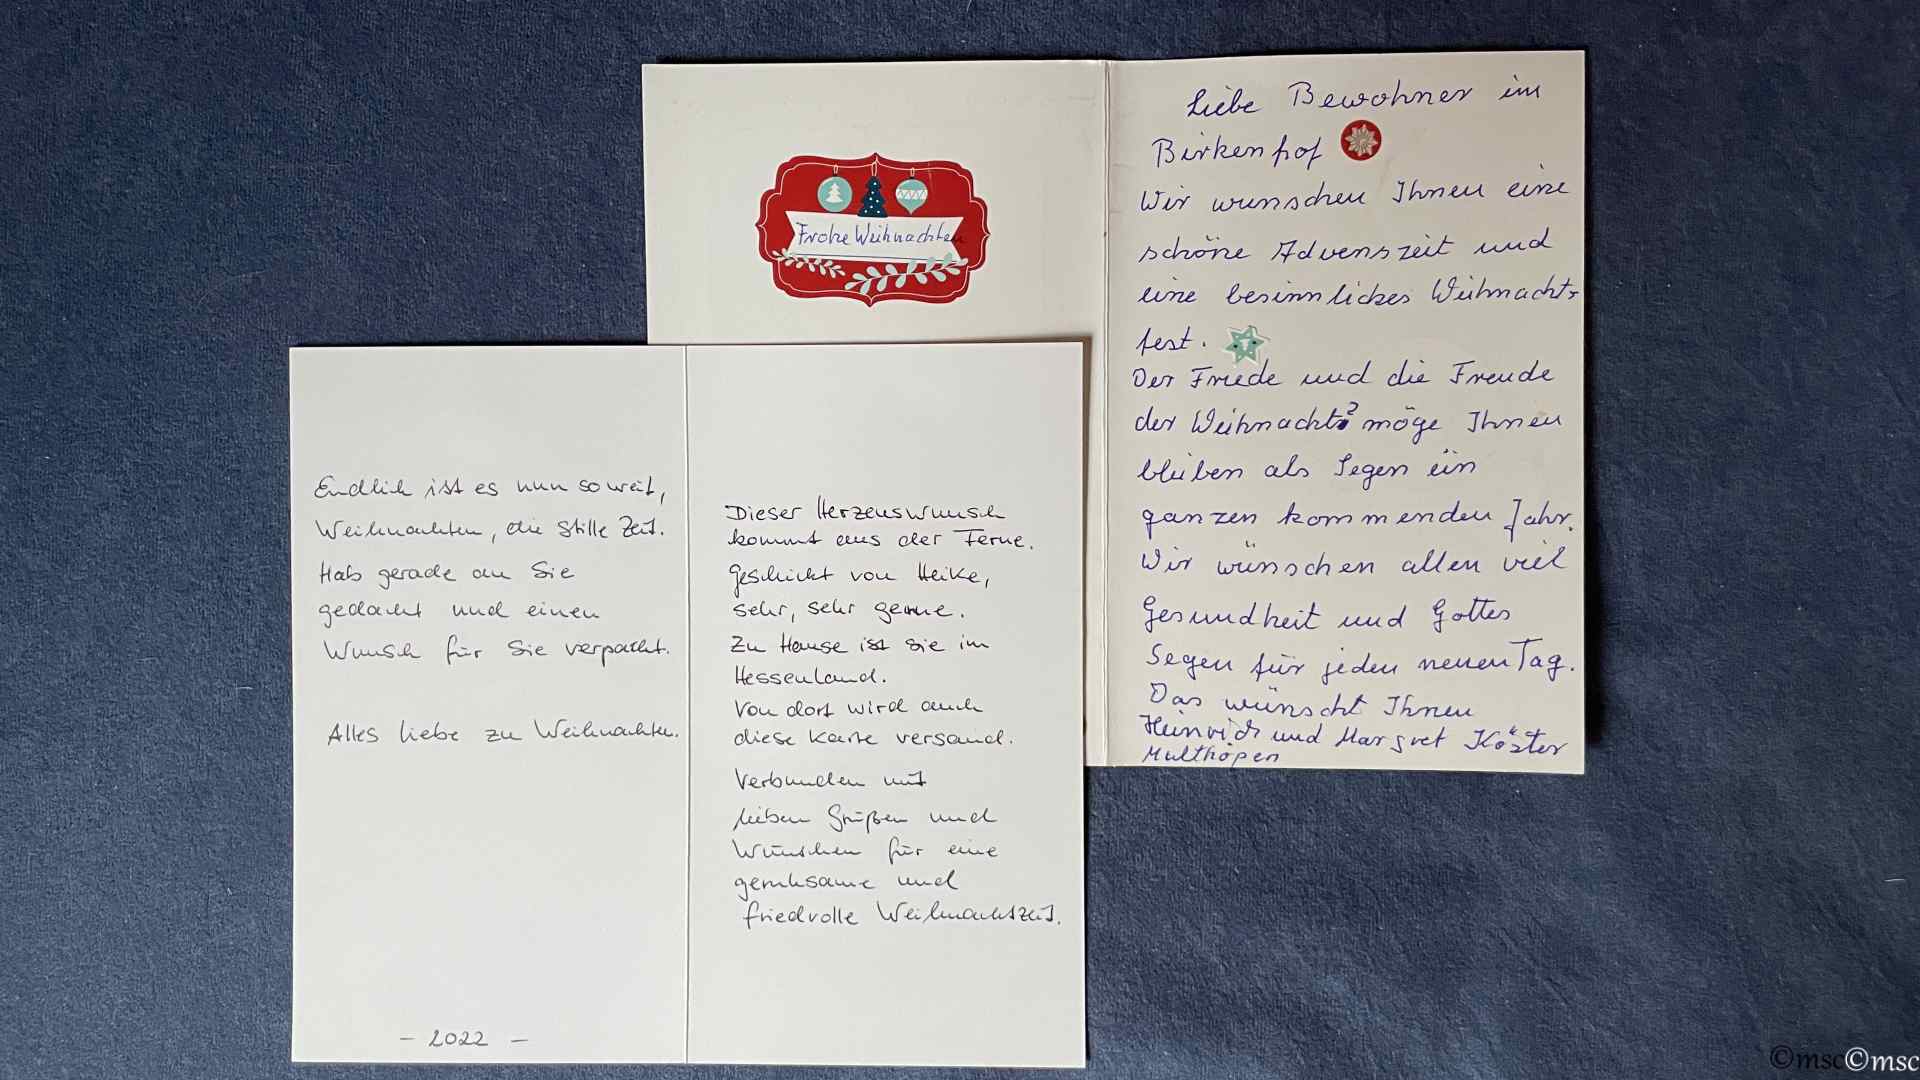 Frohe Weihnachten
Liebe Bewohner im
Birkenhof
Wir wunschen Ihnen eine
schöne Advenszeit und
eine besinnliches Weihnachts
fest.
Der Friede und die Freude
der Weihnacht möge Ihnen
bleiben als Segen ein
ganzen kommenden Jahr.
Wir wünschen allen viel
Gesundheit und Gottes
Segen für jeden neuen Tag.
Das wünscht Ihnen
Heinrich und Margret Köster
Multhöpen
Endlich ist es nun soweit,
Weihnachten, die stille Zeit.
Hab gerade an Sie
gedacht und einen
Wunsch für Sie verpackt.
Alles liebe zu Weihnachten.
- 2022 -
Dieser Herzenswunsch
kommt aus der Ferne.
Geschickt von Heike,
sehr, sehr gerne.
Zu Hause ist sie im
Hessenland.
Von dort wird auch
diese Karte versand.
Verbunden mit
lieben Grüßen und
Wünschen für eine
geruhsame und
friedvolle Weihnachtszeit.
©msc©msc